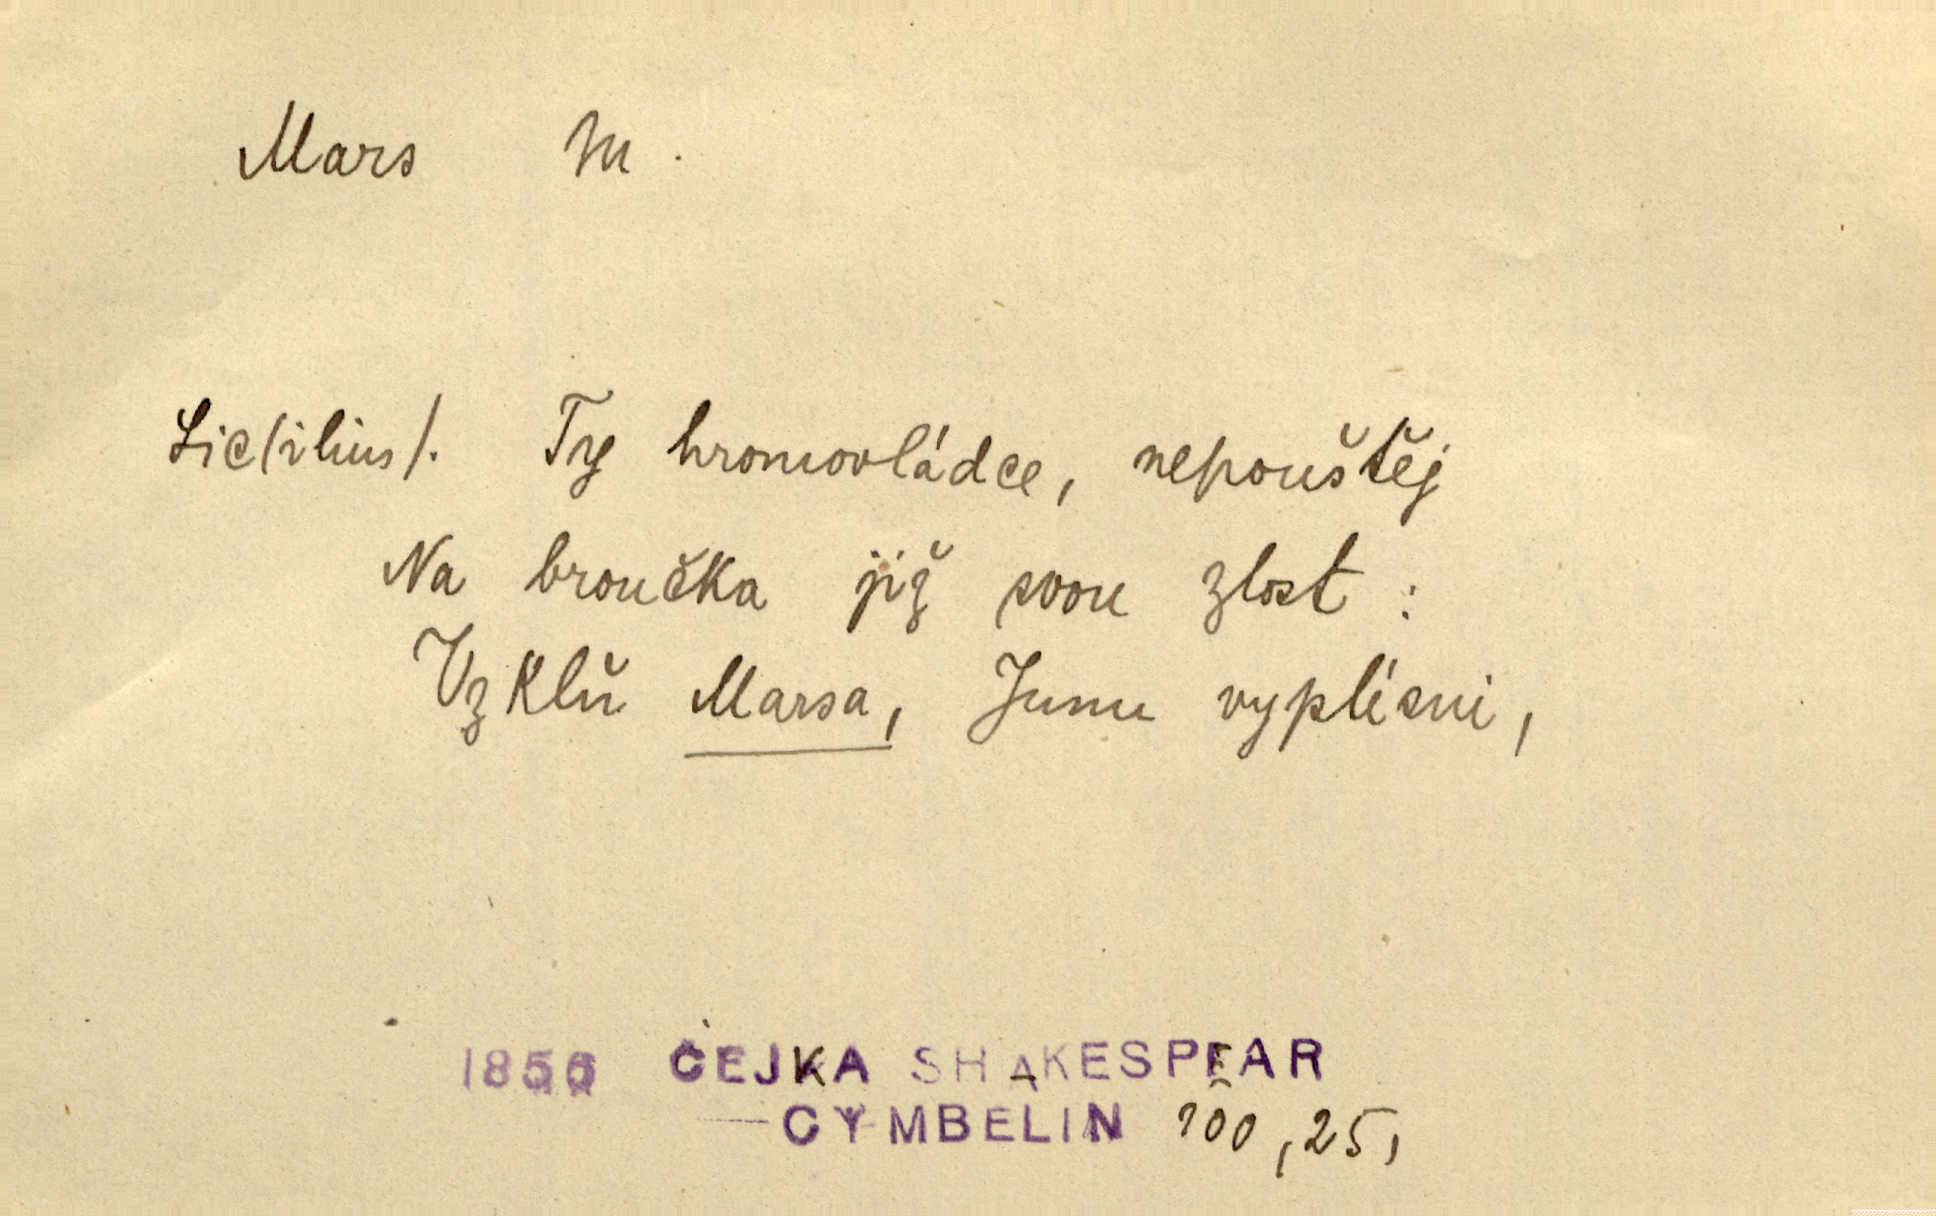 Mars m.
Sic(ilius). Ty hromovládce, nepouštěj
Na broučka již svou zlost :
Vzkluň Marsa, Junu vyplísni,
1856 ČEJKA SHAKESPEAR
CYMBELIN 100,25,